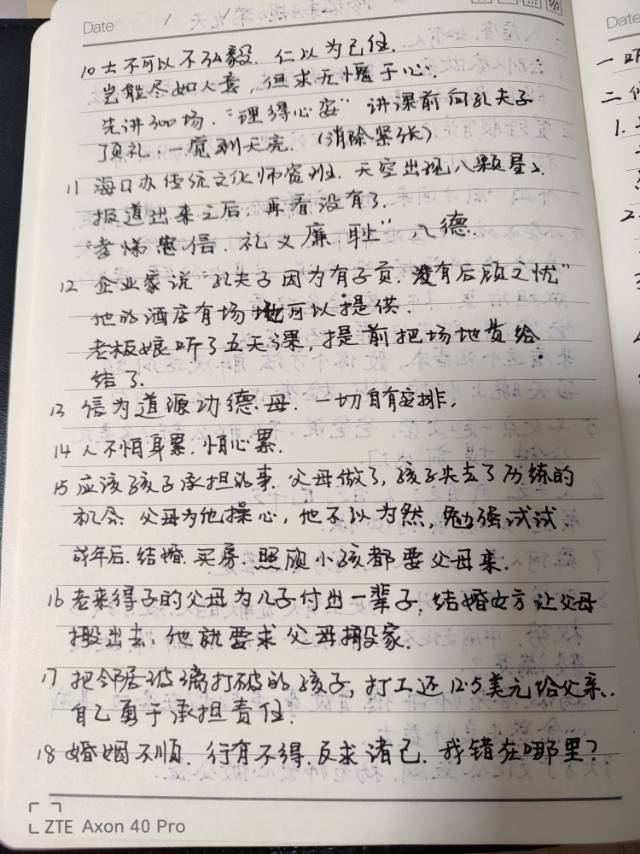 Date / /
10 士不可以不弘毅. 仁以为己任.
岂能尽如人意, 但求无愧于心.
先讲300场. "理得心安" 讲课前向孔夫子
顶礼. 一觉到天亮. (消除紧张)
11 海口办传统文化师资班. 天空出现八颗星星
报道出来之后, 再看没有了.
"孝悌忠信. 礼义廉耻" 八德.
12 企业家说 "孔夫子因为有子贡. 没有后顾之忧"
他的酒店有场地可以提供.
老板娘听了五天课, 提前把场地费给
结了.
13 信为道源功德母. 一切自有安排.
14 人不怕身累. 怕心累.
15 应该孩子承担的事. 父母做了, 孩子失去了历练的
机会. 父母为他操心, 他不以为然, 勉强试试.
成年后. 结婚. 买房. 照顾小孩都要父母来.
16 老来得子的父母为儿子付出一辈子. 结婚女方让父母
搬出去. 他就要求父母搬家.
17 把邻居玻璃打破的孩子, 打工还12.5美元给父亲.
自己勇于承担责任.
18 婚姻不顺. 行有不得. 反求诸己. 我错在哪里?
ZTE Axon 40 Pro
Date
一
二
1.
2